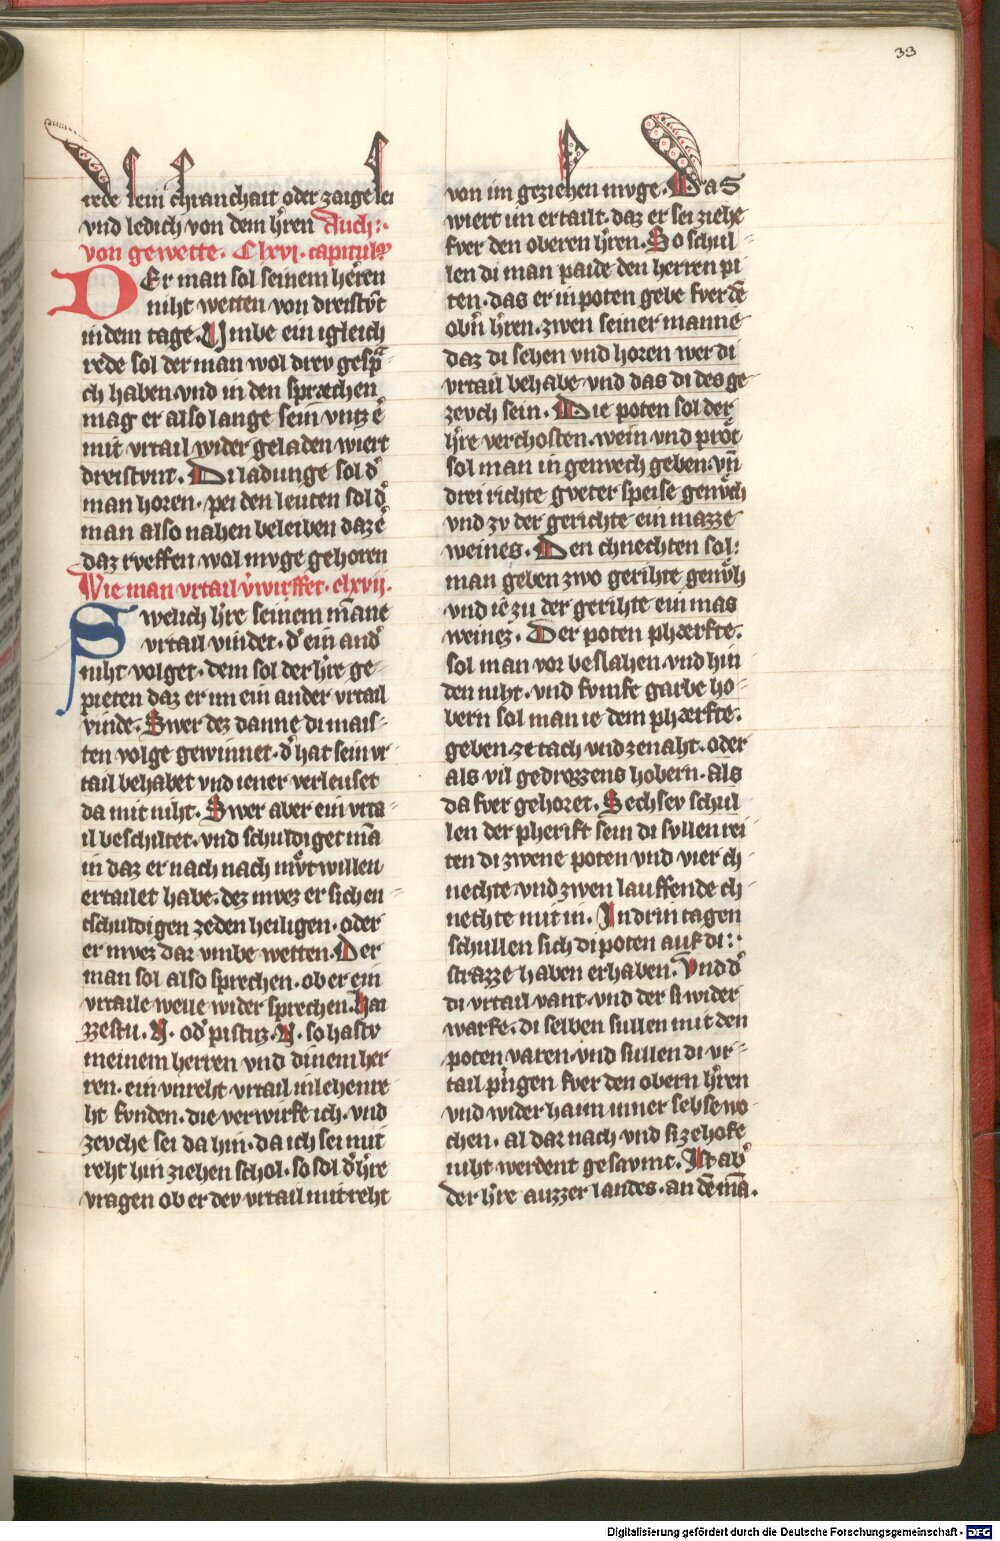 33
rede sein chranchait oder zaige sei
vnd ledich von dem hr̄en Auch:·
von gewette· Clxvj· capitulꝫ
DEr man sol seinem herren
niht wetten von dreistv̄t
in dem tage· Vmbe ein igleich
rede sol der man wol drev gesp̄
ch haben· vnd in den spræchen
mag er also lange sein vntz er
mit vrtail wider geladen wiert
dreistunt· Di ladunge sol d͛
man horen· pei den leuten sol d͛
man also nahen beleiben daz e͛
daz rveffen wol mvge gehoren
Wie man vrtail v͛wirffet· clxvij·
Swelich hr̄e seinem māne
vrtail vindet· d͛ ein and͛
niht volget· dem sol der hr̄e ge-
pieten daz er im ein ander vrtail
vinde· Swer dez danne di mais-
ten volge gewinnet· d͛ hat sein vr
tail behabet vnd iener verleuset
da mit niht· Swer aber ein vrta-
il beschiltet· vnd schuldiget mā
in daz er nach nach mv̊twillen
ertailet habe· dez mvez er sich en-
tschuldigen ze den heiligen· oder
er mvez dar vmbe wetten· Der
man sol also sprechen· ob er ein
vrtaile welle wider sprechen· Hai
zzestu· N· od͛ pistuz· N· so hastv
meinem herren vnd dinem her
ren· ein vnreht vrtail in lehenre
ht fvnden· die verwirfe ich· vnd
zevche sei da hin· da ich sei mit
reht hin ziehen schol· so sol d͛ hr̄e
vragen ob er dev vrtail mit reht
von im geziehen mvge· Das
wiert im ertailt· daz er sei ziehe
fver den oberen hr̄en· So schul-
len di man paide den herren pi
ten· das er in poten gebe fver dē
obn̄ hr̄en· zwen seiner manne
daz di sehen vnd horen wer di
vrtail behabe· vnd das di des ge
zevch sein· Die poten sol der
hr̄e verchosten· wein vnd prot
sol man in genvech geben· vn̄
drei richte gveter speise genv̊ch
vnd zv der gerichte ein mazze
weines· Den chnechten sol:
man geben zwo gerihte genv̊h
vnd ie zu der gerihte ein mas
weinez· Der poten phærfte·
sol man vor beslahen· vnd hin
den niht· vnd fvmfe garbe ho-
bern sol man ie dem phærfte·
geben· ze tach vnd ze naht· oder
als vil gedrozzens hobern· als
da fver gehoret· Sechsev schul
len der pherift sein di svllen rei-
ten di zwene poten vnd vier ch-
nechte· vnd zwen lauffende ch-
nechte mit in· In drin tagen
schullen sich di poten auf di:·
strazze haben erhaben· Vnd d͛
di vrtail vant· vnd der si wider
warfe· di selben sullen mit den
poten varen· vnd sullen di vr-
tail pringen fver den obern hr̄en
vnd wider haim inner sehs wo
chen· al dar nach vnd si ze hofe
niht werdent gesavmt· Ist ab͛
der hr̄e auzzer landes· an dem mā·
Digitalisierung gefördert durch die Deutsche Forschungsgemeinschaft - DFG